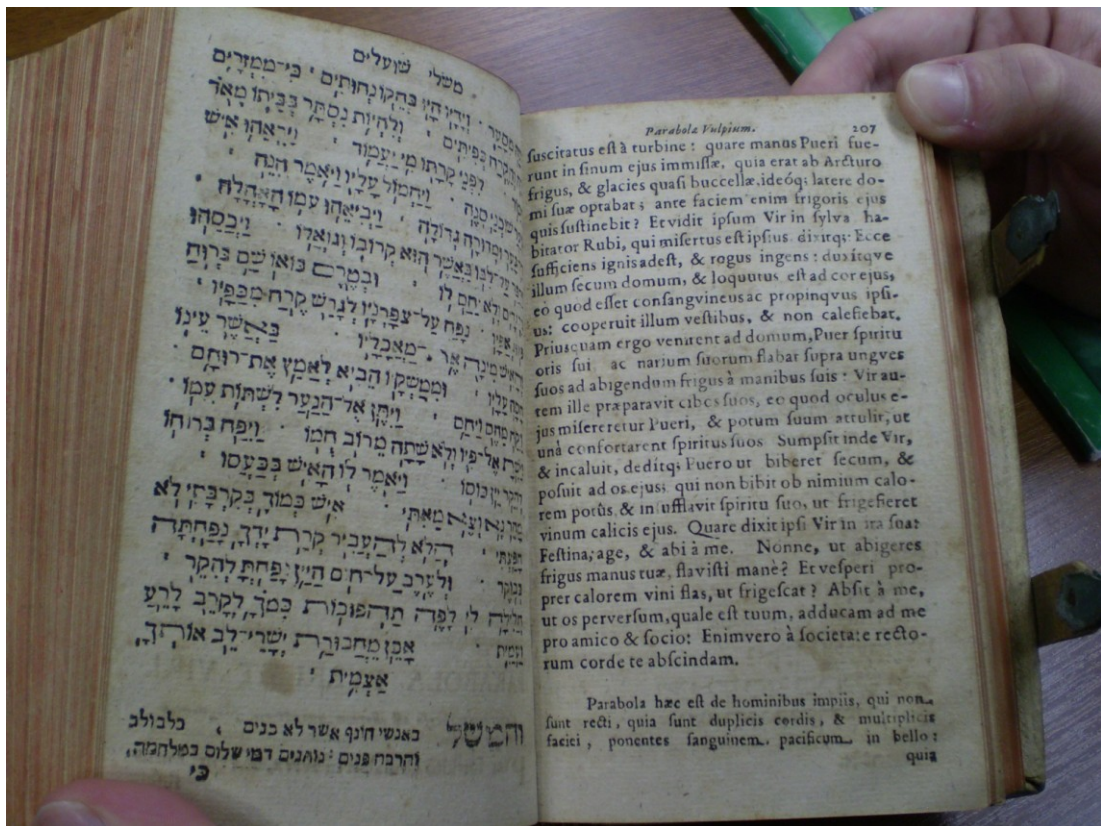 משלי שועלים
מסער · וידיו היו בחיקו נחותים · כי־ממזרים
והקרח כפיתים · ולהיות נסתר בביתו מאד
ולפני קרתו מי יעמוד · ויראהו איש
סנה · ויחמול עליו ויאמר הנה
ומדורה גדולה · ויביאהו עמו האהלה
על־לבו באשר הוא קרובו וגואלו · ויכסהו
ולא יחם לו · ובטרם בואו שם ברוח
אפיו · נפח על־צפרניו לגרש קרח מכפיו ·
האיש מאכליו · כאשר עינו
חסה עליו · וממשקיו הביא לאמץ את־רוחם ·
ויחם · ויתן אל־הנער לשתות עמו ·
אל־פיו ולא שתה מרוב חמו · ויפח ברוחו
יין כוסו · ויאמר לו האיש בכעסו
נא וצא מאתי · איש כמוך בקרבתי לא
חפצתי · הלא להעביר קרת ידך נפחתה
בבוקר · ולערב על־חום היין פחת להקר ·
חלילה לי לפה תהפוכות כמך לקרב לרע
ועמית · אכן מחבורת ישרי־לב אותך
אצמית ·
והמשל באנשי חונף אשר לא כנים · כלבולב
והרבה פנים : נותנים דמי שלום במלחמה,
כי
Parabolæ Vulpium. 207
suscitatus est à turbine : quare manus Pueri fue-
runt in sinum ejus immissæ, quia erat ab Arcturo
frigus, & glacies quasi buccellæ, ideóq; latere do-
mi suæ optabat; ante faciem enim frigoris ejus
quis sustinebit? Et vidit ipsum Vir in sylva ha-
bitator Rubi, qui misertus est ipsius dixitq; Ecce
sufficiens ignis adest, & rogus ingens : duxitqve
illum secum domum, & loquutus est ad cor ejus,
eo quod esset consangvineus ac propinqvus ipsi-
us: cooperuit illum vestibus, & non calefiebat.
Priusquam ergo venirent ad domum, Puer spiritu
oris sui ac narium suorum flabat supra ungves
suos ad abigendum frigus à manibus suis : Vir au-
tem ille præparavit cibos suos, eo quod oculus e-
jus misereretur Pueri, & potum suum attulit, ut
unà confortarent spiritus suos Sumpsit inde Vir,
& incaluit, deditq; Puero ut biberet secum, &
posuit ad os ejus; qui non bibit ob nimium calo-
rem potûs, & insufflavit spiritu suo, ut frigefieret
vinum calicis ejus. Quare dixit ipsi Vir in ira sua:
Festina, age, & abi à me. Nonne, ut abigeres
frigus manus tuæ, flavisti manè? Et vesperi pro-
pter calorem vini flas, ut frigescat? Absit à me,
ut os perversum, quale est tuum, adducam ad me
pro amico & socio: Enimvero à societate recto-
rum corde te abscindam.
Parabola hæc est de hominibus impiis, qui non
sunt recti, quia sunt duplicis cordis, & multiplicis
faciei, ponentes sanguinem pacificum in bello:
quia